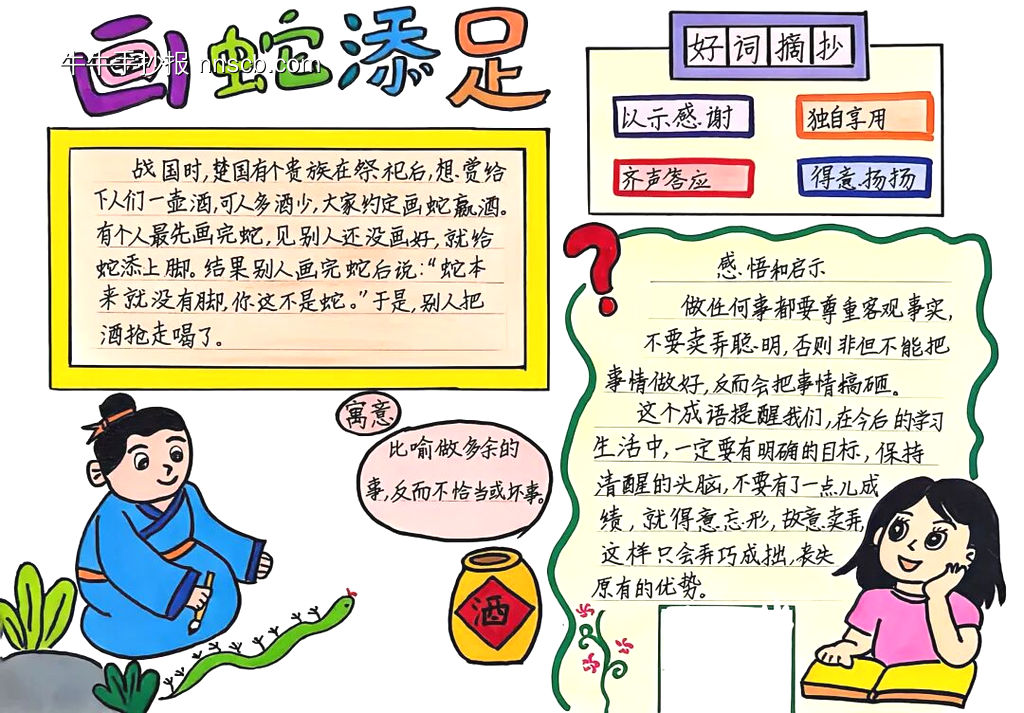 画蛇添足
牛牛手抄报 nnscb.com
战国时,楚国有个贵族在祭祀后,想赏给
下人们一壶酒,可人多酒少,大家约定画蛇赢酒。
有个人最先画完蛇,见别人还没画好,就给
蛇添上脚。结果别人画完蛇后说:“蛇本
来就没有脚,你这不是蛇。”于是,别人把
酒抢走喝了。
好词摘抄
以示感谢
独自享用
齐声答应
得意扬扬
感悟和启示
做任何事都要尊重客观事实,
不要卖弄聪明,否则非但不能把
事情做好,反而会把事情搞砸。
这个成语提醒我们,在今后的学习
生活中,一定要有明确的目标,保持
清醒的头脑,不要有了一点儿成
绩,就得意忘形,故意卖弄,
这样只会弄巧成拙,丧失
原有的优势。
寓意
比喻做多余的
事,反而不恰当或坏事。
酒